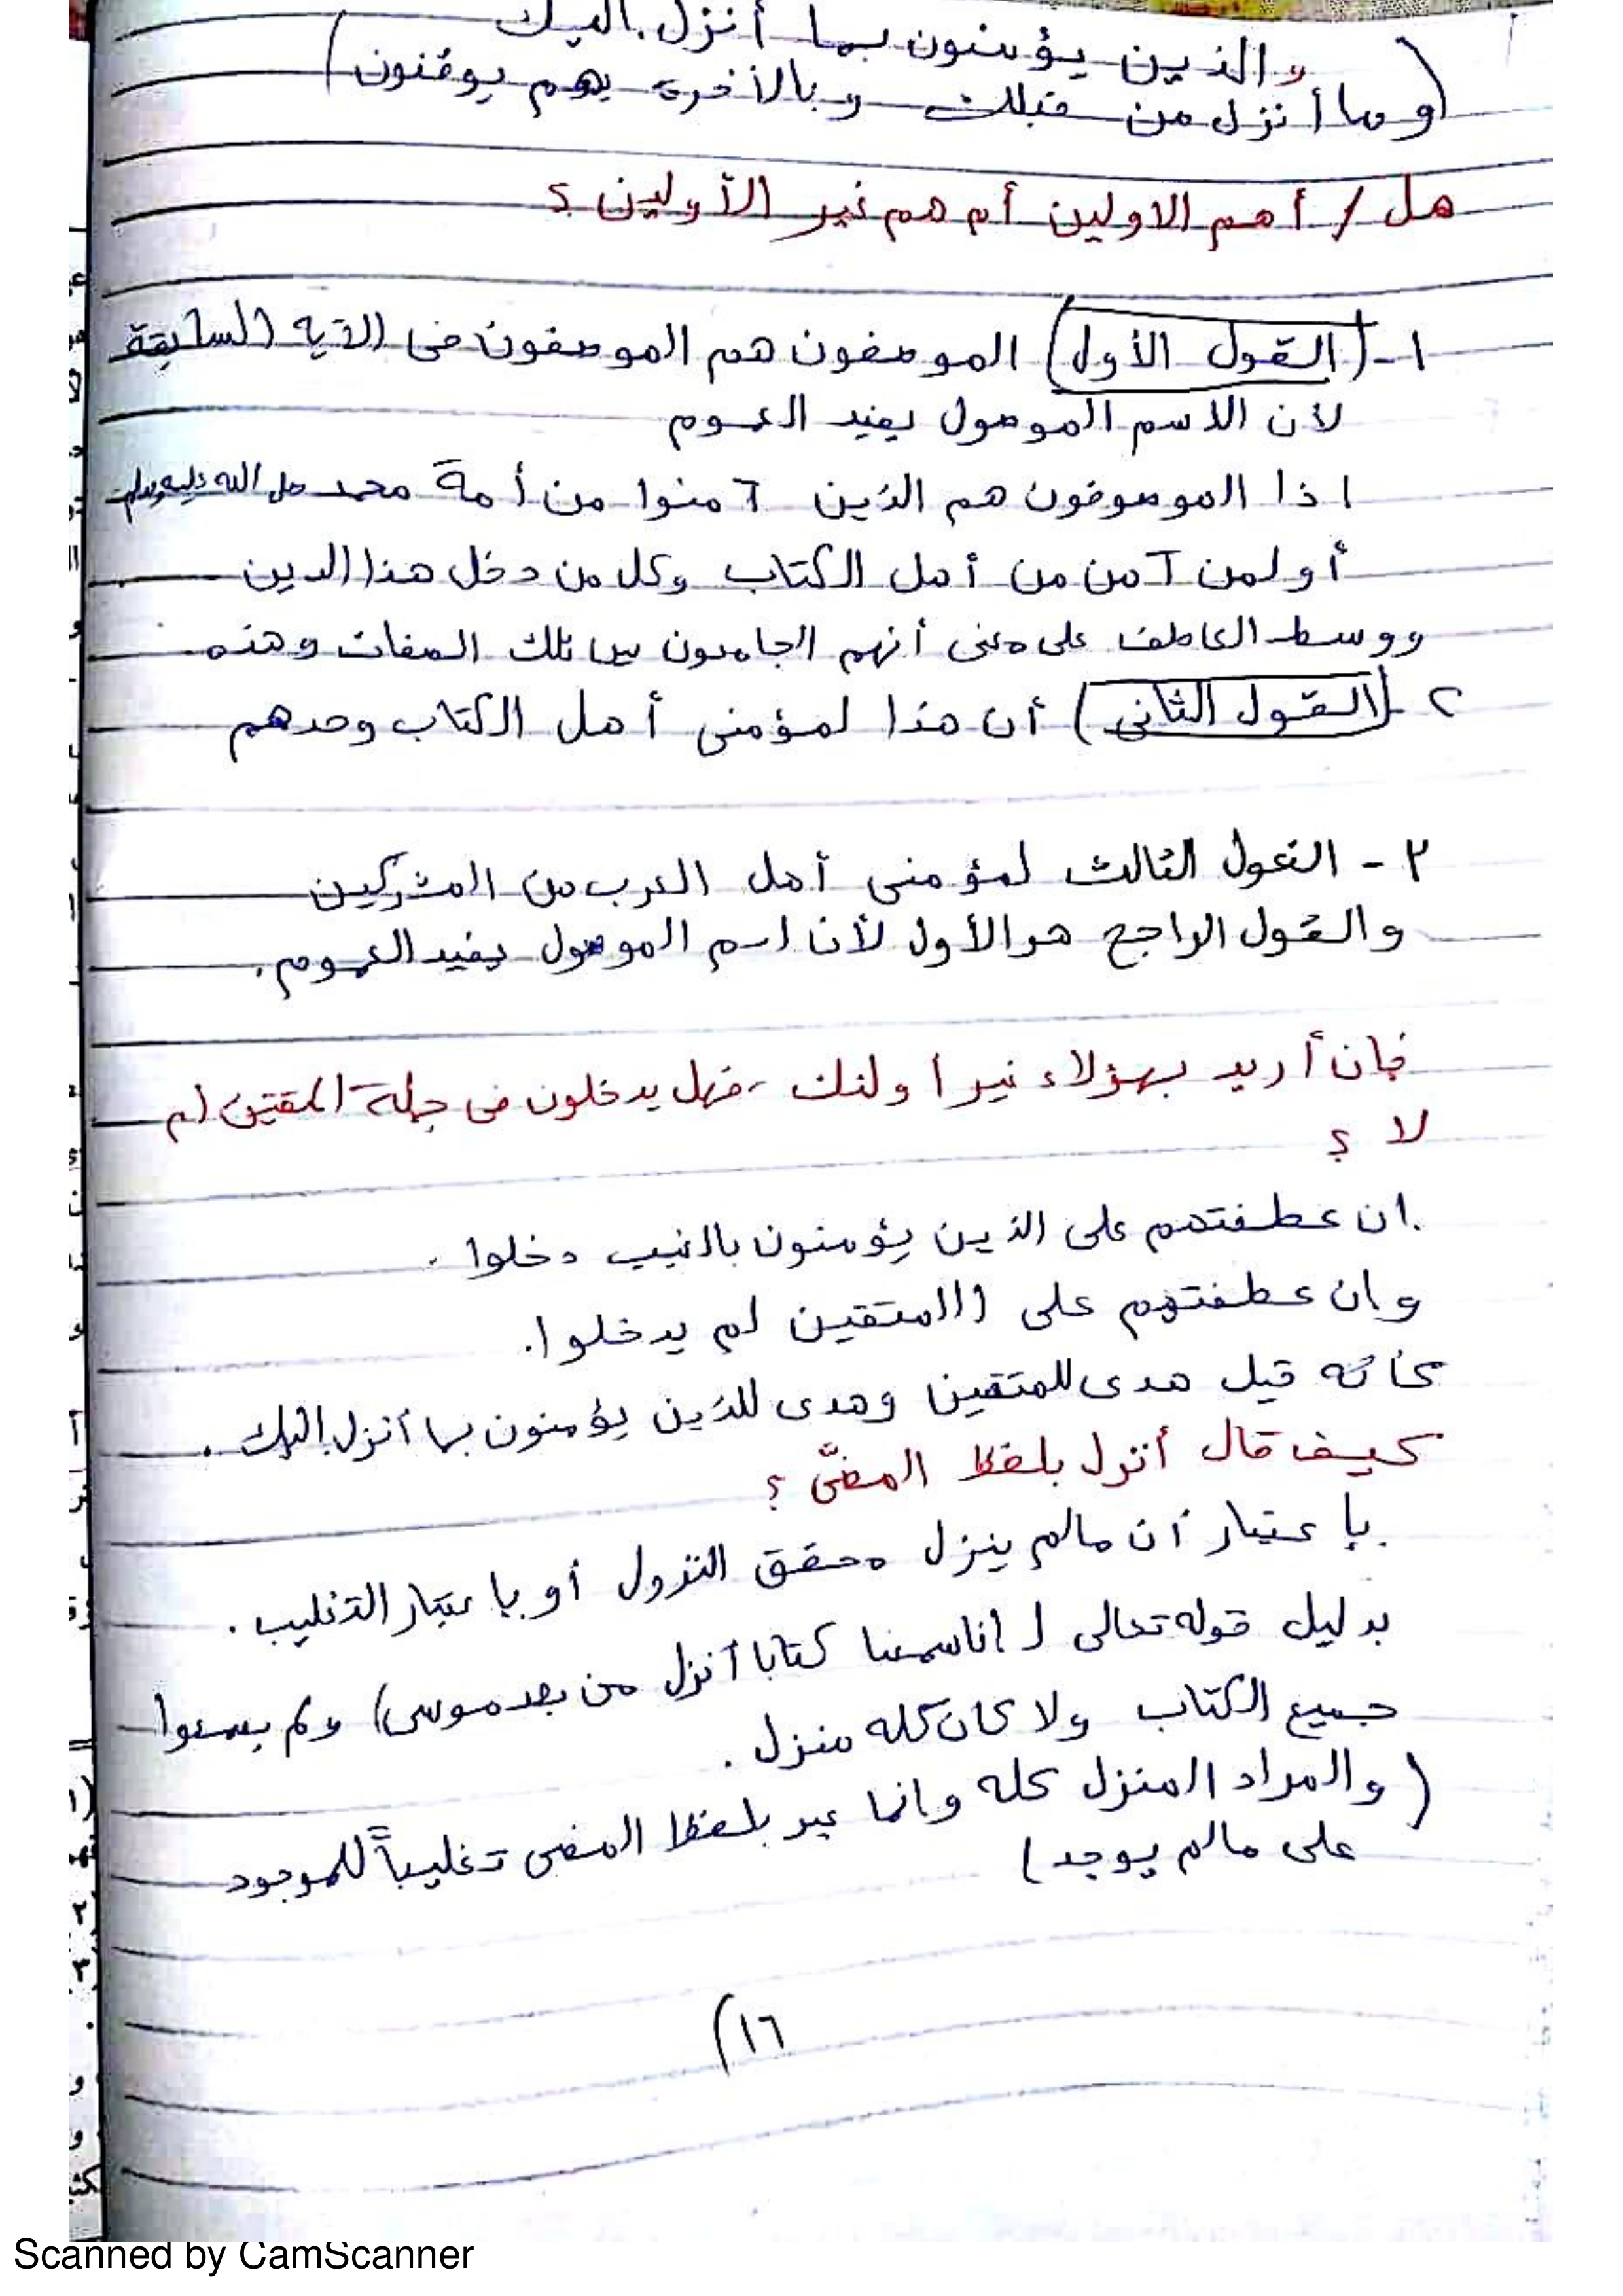 والذين يؤمنون بما أنزل اليك
(وما أنزل من قبلك وبالآخرة هم يوقنون)
هل / أهم الاولين أم هم غير الأولين؟
١- (القول الأول) الموصفون هم الموصفون فى الآية السابقة
لأن الاسم الموصول يفيد العموم
اذا الموصوفون هم الذين آمنوا من أمة محمد صل الله عليه وسلم
أو لمن آمن من أهل الكتاب وكل من دخل هذا الدين
ووسط العاطف على معنى أنهم الجامعون بين تلك الصفات وهذه
٢- (القول الثانى) أن هذا لمؤمنى أهل الكتاب وحدهم
٣- القول الثالث لمؤمنى أهل العرب من المشركين
والقول الراجح هو الأول لأن اسم الموصول يفيد العموم.
فإن أريد بهؤلاء غير أولئك، فهل يدخلون فى جملة المتقين أم
لا؟
ان عطفتهم على الذين يؤمنون بالغيب دخلوا.
وان عطفتهم على (المتقين لم يدخلوا.
كأنه قيل هدى للمتقين وهدى للذين يؤمنون بما أنزل إليك.
كيف قال أنزل بلفظ المضىّ؟
بإعتبار أن مالم ينزل محقق النزول أو باعتبار التغليب.
بدليل قوله تعالى (إنا سمعنا كتابا أنزل من بعد موسى) ولم يسمعوا
جميع الكتاب ولا كان كله منزل.
(والمراد المنزل كله وانما عبر بلفظ المضى تغليباً للموجود
على مالم يوجد)
(١٦
Scanned by CamScanner